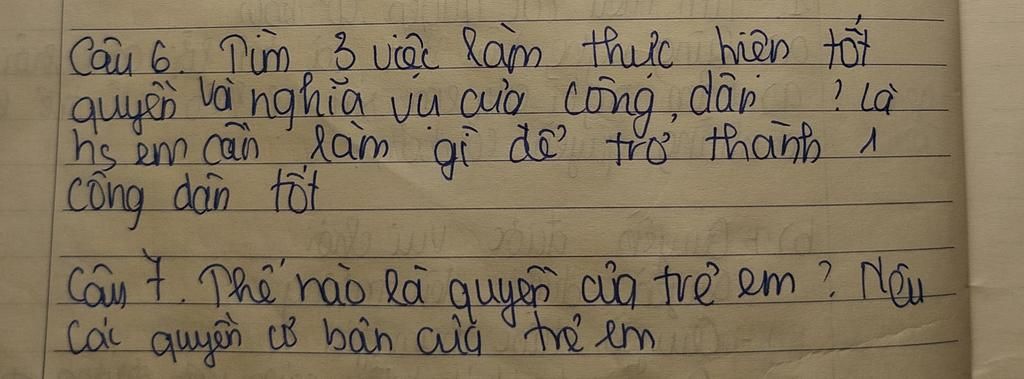 Câu 6. Tìm 3 việc làm thực hiện tốt
quyền và nghĩa vụ của công dân ? Là
hs em cần làm gì để trở thành 1
công dân tốt
Câu 7. Thế nào là quyền của trẻ em ? Nêu
các quyền cơ bản của trẻ em